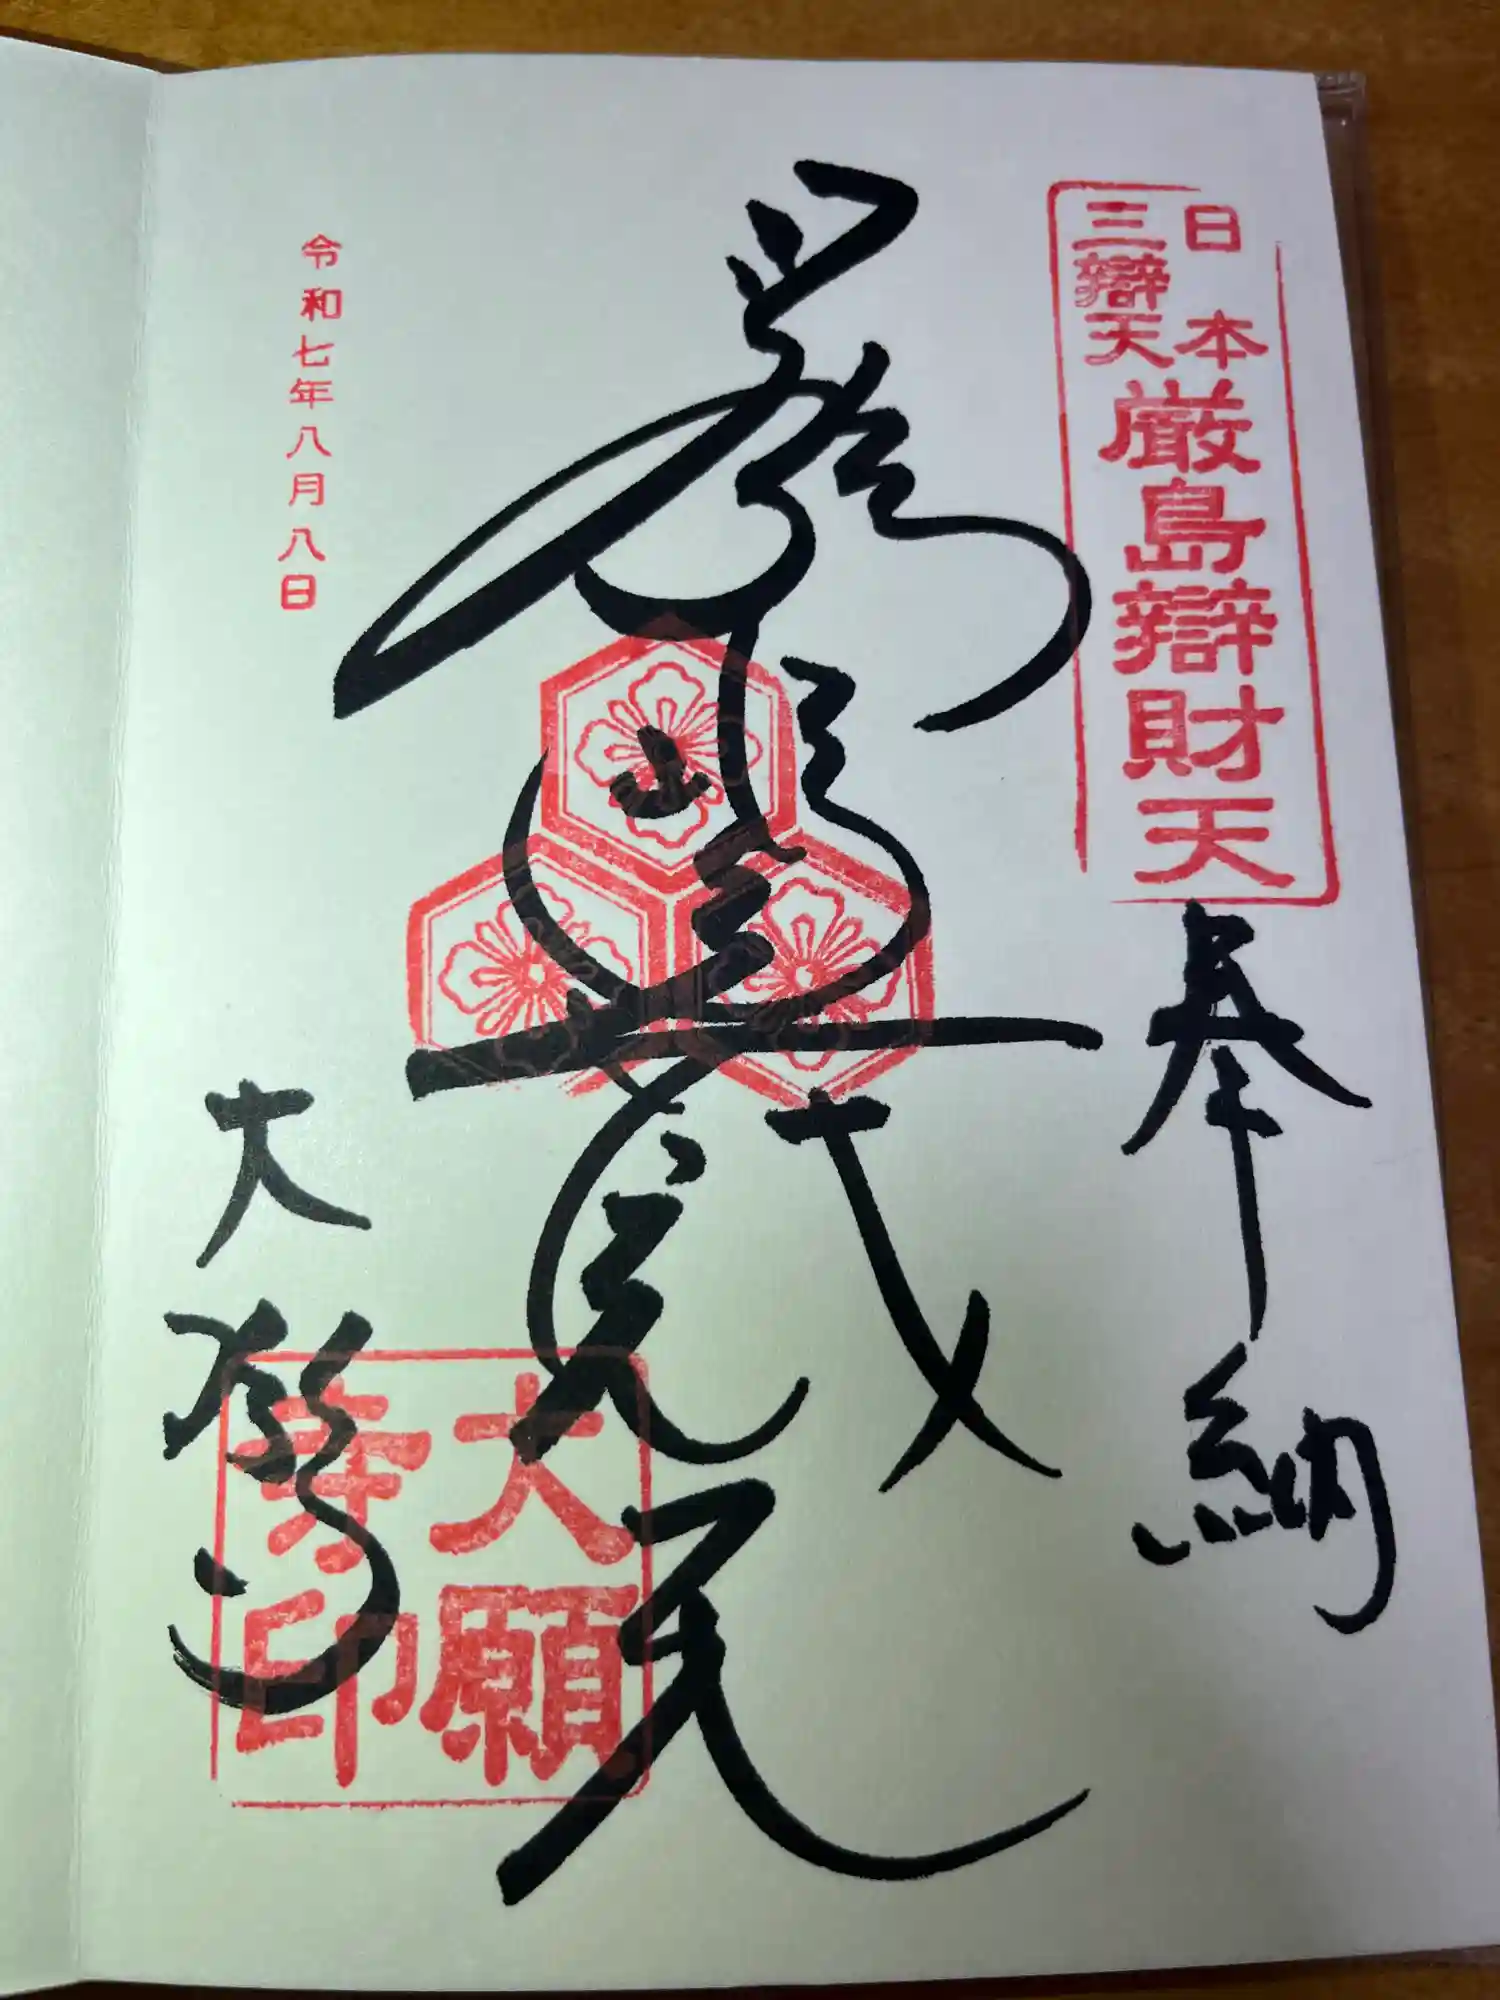 日本
三辯天
厳島辯財天
奉納
厳島辯財天
令和七年八月八日
大願寺
大願
寺印